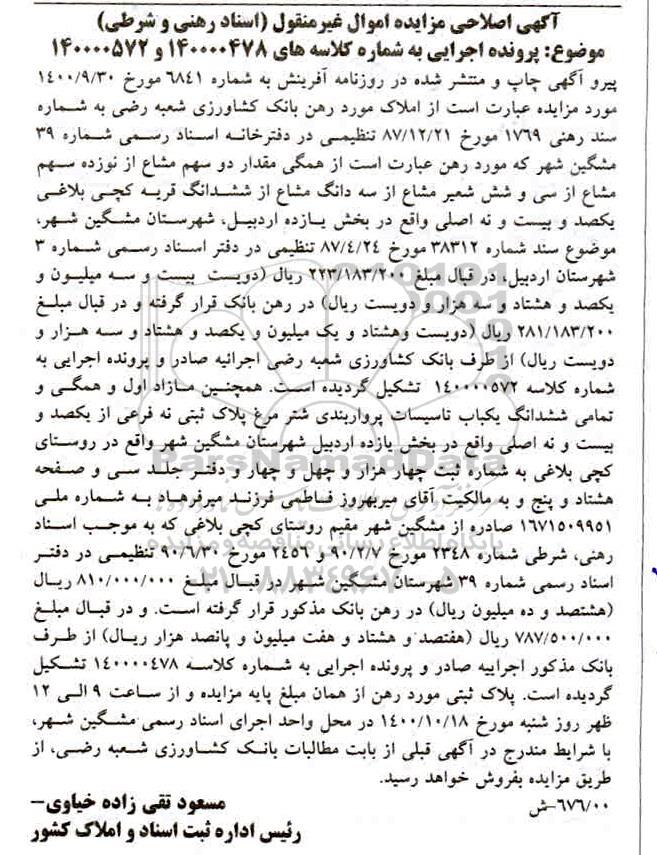 آگهی اصلاحی مزایده اموال غیرمنقول (اسناد رهنی و شرطی)
موضوع: پرونده اجرایی به شماره کلاسه های ۱۴۰۰۰۰۴۷۸ و ۱۴۰۰۰۰۵۷۲
پیرو آگهی چاپ و منتشر شده در روزنامه آفرینش به شماره ۶۸۴۱ مورخ ۱۴۰۰/۹/۳۰
مورد مزایده عبارت است از املاک مورد رهن بانک کشاورزی شعبه رضی به شماره
سند رهنی ۱۷۶۹ مورخ ۸۷/۱۲/۲۱ تنظیمی در دفترخانه اسناد رسمی شماره ۳۹
مشگین شهر که مورد رهن عبارت است از همگی مقدار دو سهم مشاع از نوزده سهم
مشاع از سی و شش شعیر مشاع از سه دانگ مشاع از ششدانگ قریه کچی بلاغی
یکصد و بیست و نه اصلی واقع در بخش یازده اردبیل، شهرستان مشگین شهر،
موضوع سند شماره ۳۸۳۱۲ مورخ ۸۷/۴/۲۴ تنظیمی در دفتر اسناد رسمی شماره ۳
شهرستان اردبیل، در قبال مبلغ ۲۲۳/۱۸۳/۲۰۰ ریال (دویست بیست و سه میلیون و
یکصد و هشتاد و سه هزار و دویست ریال) در رهن بانک قرار گرفته و در قبال مبلغ
۲۸۱/۱۸۳/۲۰۰ ریال (دویست وهشتاد و یک میلیون و یکصد و هشتاد و سه هزار و
دویست ریال) از طرف بانک کشاورزی شعبه رضی اجرائیه صادر و پرونده اجرایی به
شماره کلاسه ۱۴۰۰۰۰۵۷۲ تشکیل گردیده است. همچنین مازاد اول و همگی و
تمامی ششدانگ یکباب تاسیسات پرواربندی شتر مرغ پلاک ثبتی نه فرعی از یکصد و
بیست و نه اصلی واقع در بخش یازده اردبیل شهرستان مشگین شهر واقع در روستای
کچی بلاغی به شماره ثبت چهار هزار و چهل و چهار و دفتر جلد سی و صفحه
هشتاد و پنج و به مالکیت آقای میربهروز فاطمی فرزند میرفرهاد به شماره ملی
۱۶۷۱۵۰۹۹۵۱ صادره از مشگین شهر مقیم روستای کچی بلاغی که به موجب اسناد
رهنی، شرطی شماره ۲۳۴۸ مورخ ۹۰/۲/۷ و ۲۴۵۶ مورخ ۹۰/۶/۳۰ تنظیمی در دفتر
اسناد رسمی شماره ۳۹ شهرستان مشگین شهر در قبال مبلغ ۸۱۰/۰۰۰/۰۰۰ ریال
(هشتصد و ده میلیون ریال) در رهن بانک مذکور قرار گرفته است. و در قبال مبلغ
۷۸۷/۵۰۰/۰۰۰ ریال (هفتصد و هشتاد و هفت میلیون و پانصد هزار ریال) از طرف
بانک مذکور اجراییه صادر و پرونده اجرایی به شماره کلاسه ۱۴۰۰۰۰۴۷۸ تشکیل
گردیده است. پلاک ثبتی مورد رهن از همان مبلغ پایه مزایده و از ساعت ۹ الی ۱۲
ظهر روز شنبه مورخ ۱۴۰۰/۱۰/۱۸ در محل واحد اجرای اسناد رسمی مشگین شهر،
با شرایط مندرج در آگهی قبلی از بابت مطالبات بانک کشاورزی شعبه رضی، از
طریق مزایده بفروش خواهد رسید.
مسعود تقی زاده خیاوی–
۶۷۶/۰۰–ش
رئیس اداره ثبت اسناد و املاک کشور
ParsNamadData
پایگاه اطلاع رسانی مناقصه و مزایده
۰۲۱-۸۸۳۴۹۶۷۰-۵